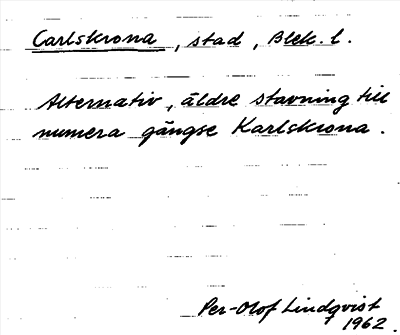 Carlskrona, stad, Blek. l.
Alternativ, äldre stavning till
numera gängse Karlskrona.
Per-Olof Lindqvist
1962.